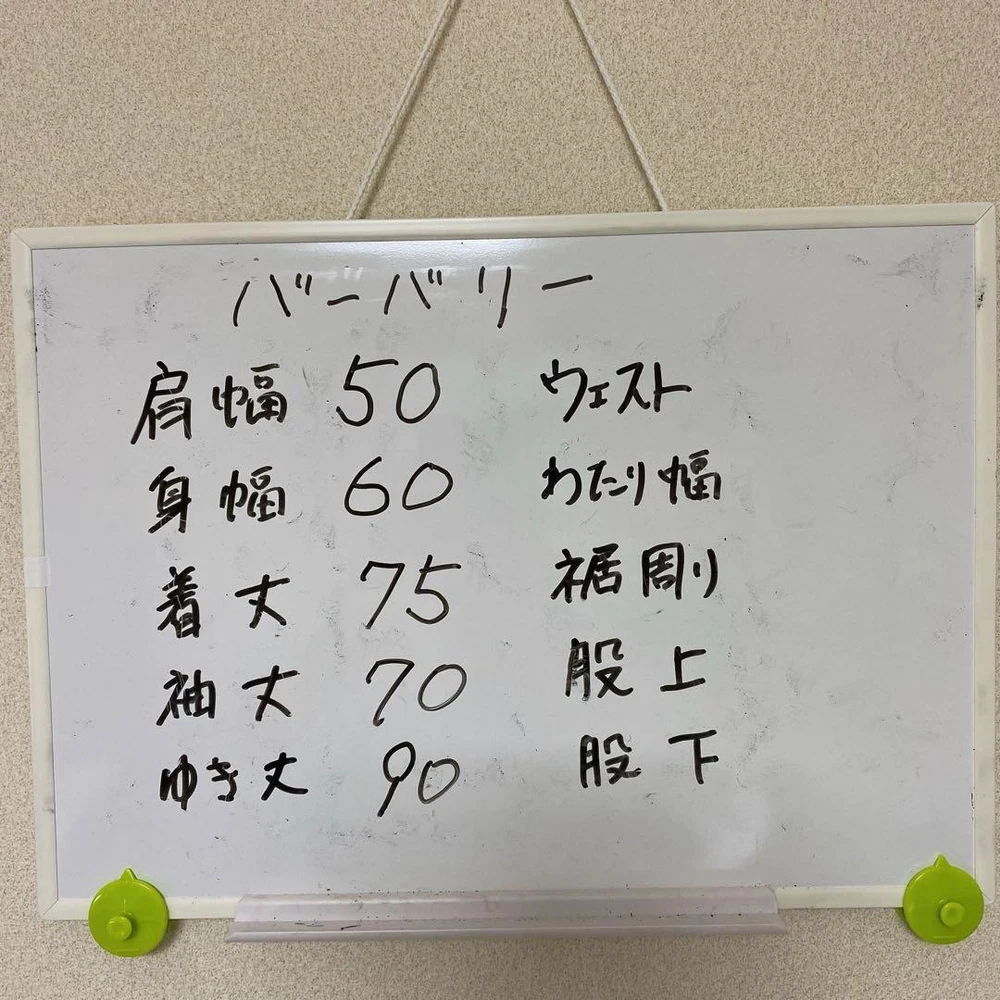 バーバリー
肩幅 50 ウェスト
身幅 60 わたり幅
着丈 75 裾周り
袖丈 70 股上
ゆき丈 90 股下